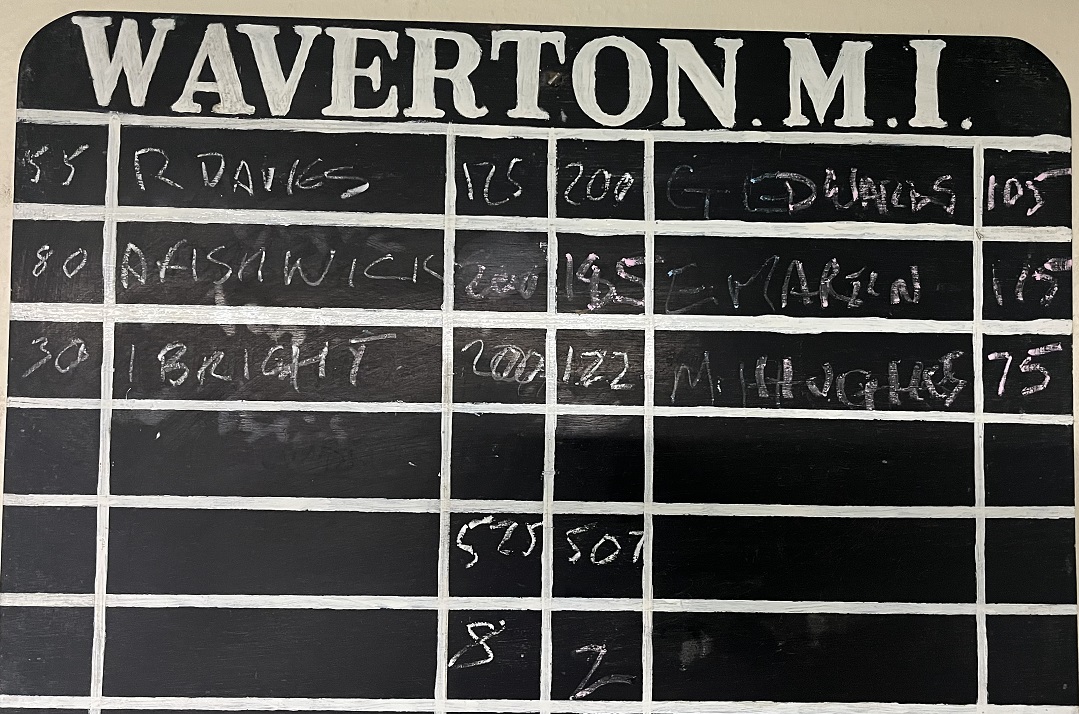 WAVERTON. M.I.
55 R DAVIES 125 200 G EDWARDS 105
80 A FISHWICK 200 185 E MARTIN 115
30 I BRIGHT 200 122 M HUGHES 75
525 507
8 2